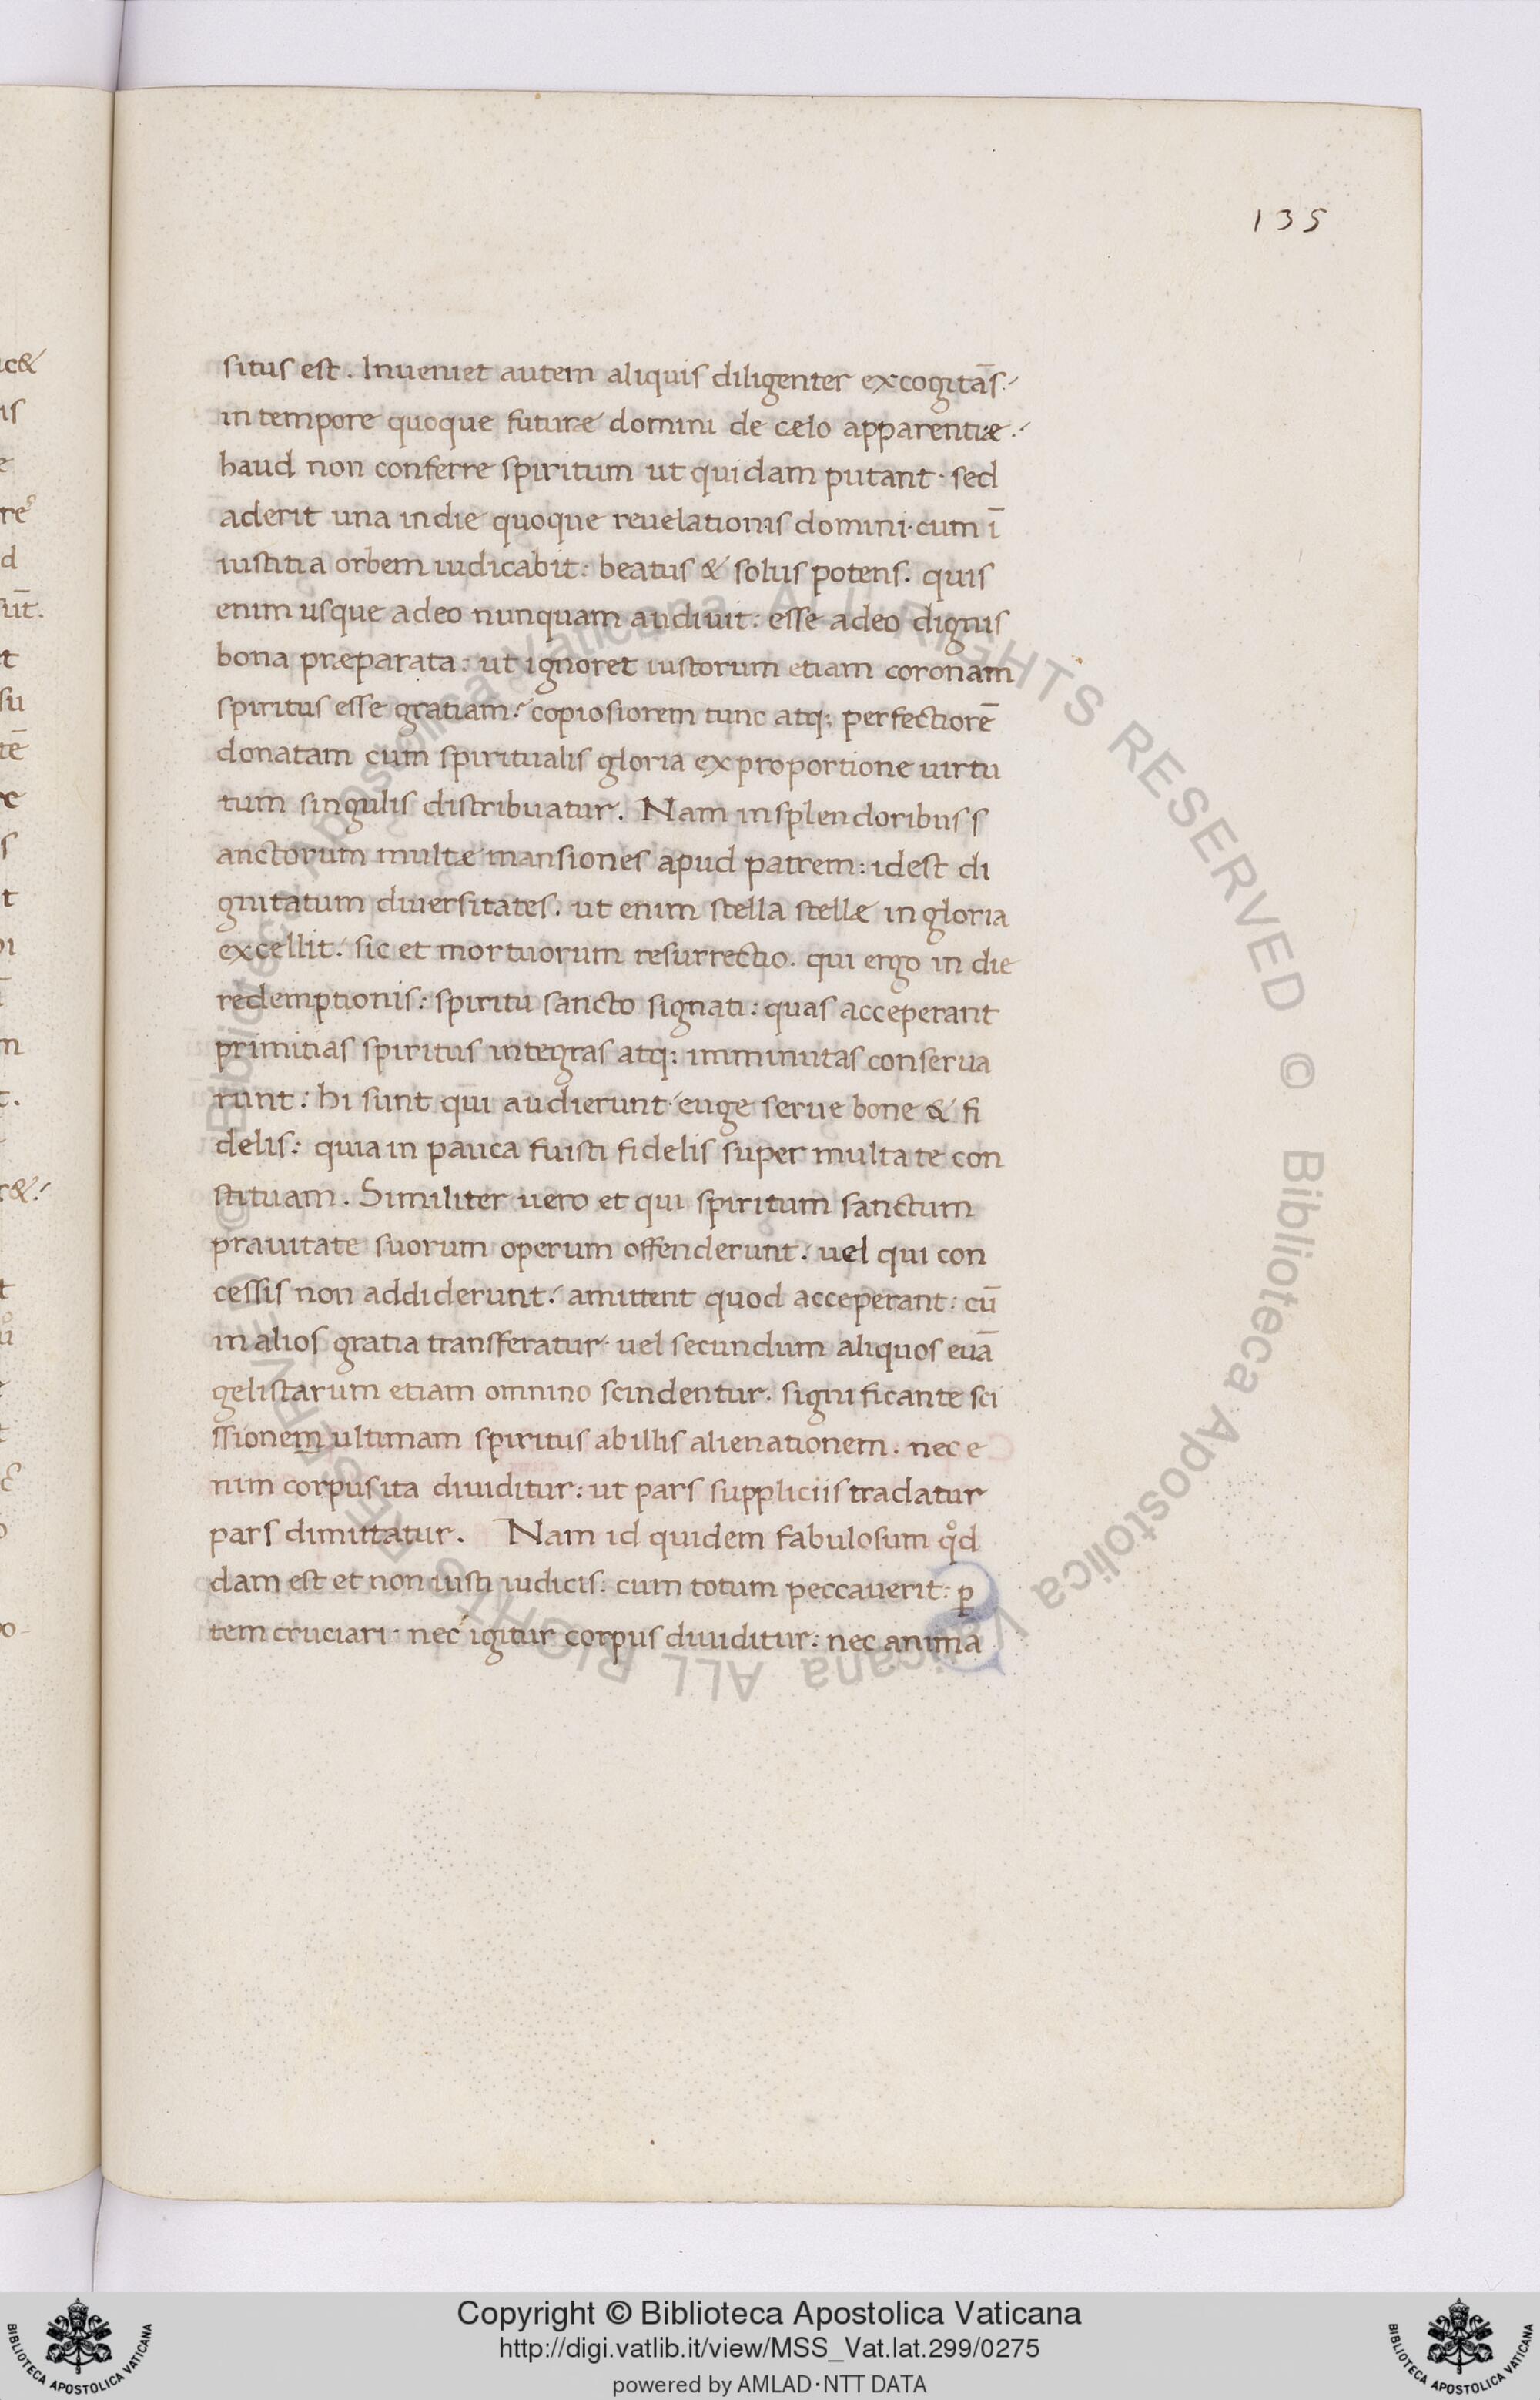 135
situs est. Inueniet autem aliquis diligenter excogitās:
in tempore quoque futuræ domini de cælo apparentiæ:
haud non conferre spiritum ut quidam putant· sed
aderit una in die quoque reuelationis domini· cum ī
iustitia orbem iudicabit: beatus & solus potens. quis
enim usque adeo nunquam audiuit: esse adeo dignis
bona præparata: ut ignoret iustorum etiam coronam
spiritus esse gratiam: copiosiorem tunc atq; perfectiorē
donatam cum spiritualis gloria ex proportione uirtu
tum singulis distribuatur. Nam in splendoribus s
anctorum multæ mansiones apud patrem: idest di
gnitatum diuersitates. ut enim stella stellæ in gloria
excellit: sic et mortuorum resurrectio. qui ergo in die
redemptionis: spiritu sancto signati: quas acceperant
primitias spiritus integras atq; imminutas conserua
runt: hi sunt qui audierunt· euge serue bone & fi
delis: quia in pauca fuisti fidelis super multa te con
stituam. Similiter uero et qui spiritum sanctum
prauitate suorum operum offenderunt: uel qui con
cessis non addiderunt: amittent quod acceperant: cū
in alios gratia transferatur· uel secundum aliquos euā
gelistarum etiam omnino scindentur. significante sci
ssionem ultimam spiritus ab illis alienationem. nec e
nim corpus ita diuiditur: ut pars suppliciis tradatur
pars dimittatur. Nam id quidem fabulosum qͦd
dam est et non iusti iudicis: cum totum peccauerit: ꝑ
tem cruciari· nec igitur corpus diuiditur: nec anima
© Biblioteca Apostolica Vaticana ALL RIGHTS RESERVED
© Biblioteca Apostolica Vaticana ALL RIGHTS RESERVED
Copyright © Biblioteca Apostolica Vaticana
http://digi.vatlib.it/view/MSS_Vat.lat.299/0275
powered by AMLAD·NTT DATA
BIBLIOTECA APOSTOLICA VATICANA
BIBLIOTECA APOSTOLICA VATICANA